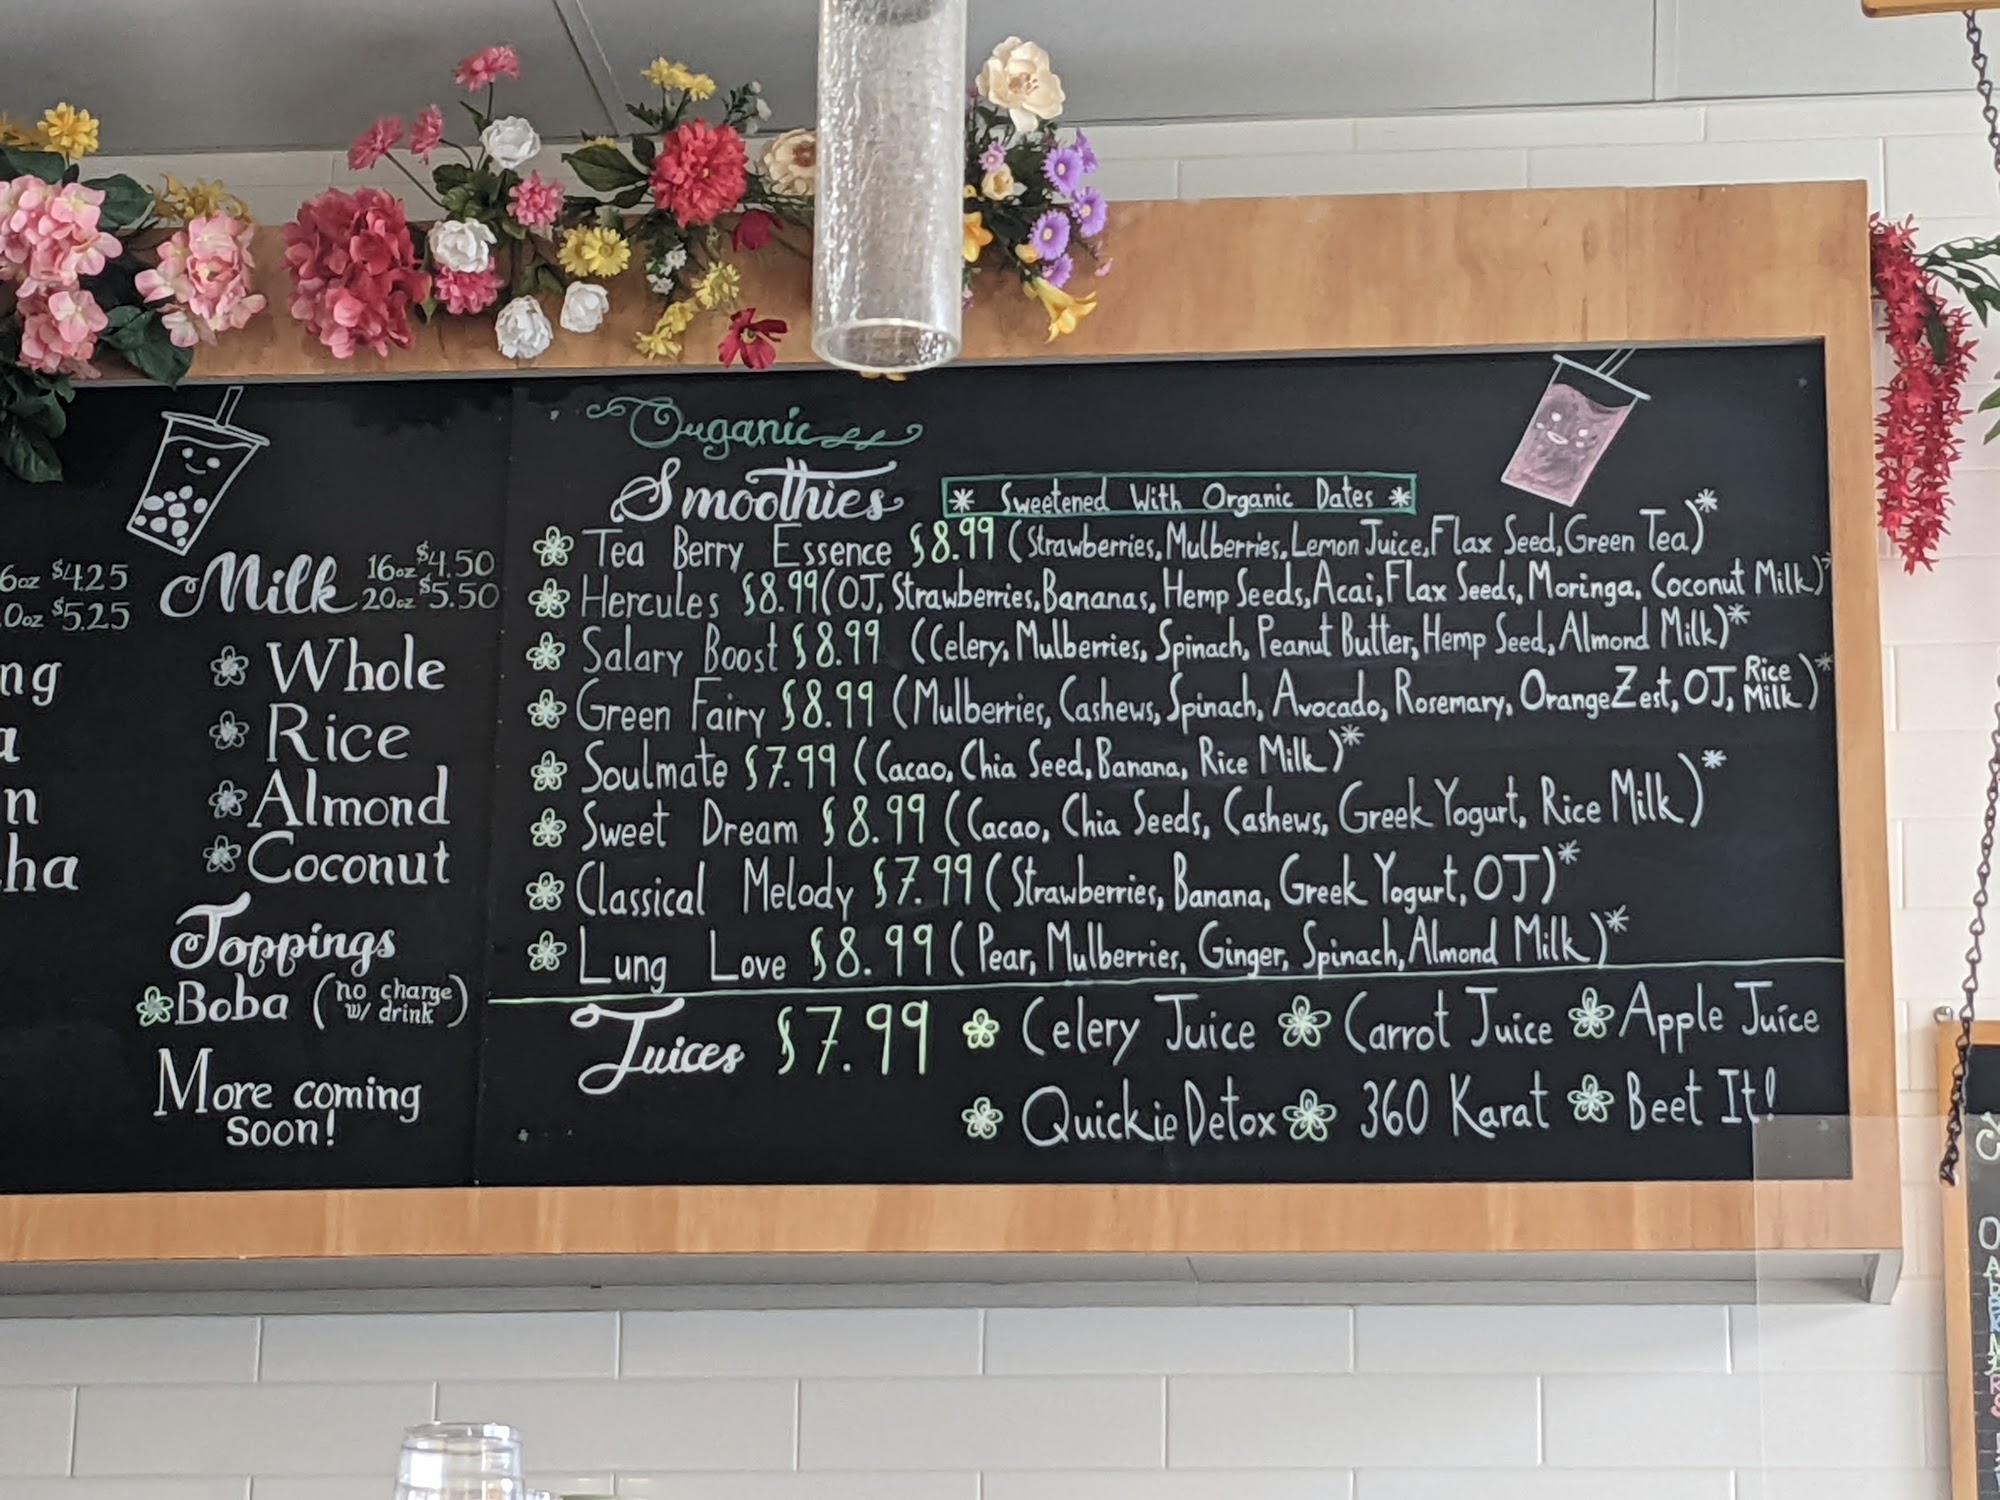 6oz $4.25
0oz $5.25
ng
a
n
ha
Milk 16oz $4.50
20oz $5.50
Whole
Rice
Almond
Coconut
Toppings
Boba (no charge
w/ drink)
More coming
soon!
Organic
Smoothies * Sweetened With Organic Dates *
Tea Berry Essence $8.99 (Strawberries, Mulberries, Lemon Juice, Flax Seed, Green Tea)*
Hercules $8.99 (OJ, Strawberries, Bananas, Hemp Seeds, Acai, Flax Seeds, Moringa, Coconut Milk)*
Salary Boost $8.99 (Celery, Mulberries, Spinach, Peanut Butter, Hemp Seed, Almond Milk)*
Green Fairy $8.99 (Mulberries, Cashews, Spinach, Avocado, Rosemary, Orange Zest, OJ, Rice Milk)*
Soulmate $7.99 (Cacao, Chia Seed, Banana, Rice Milk)*
Sweet Dream $8.99 (Cacao, Chia Seeds, Cashews, Greek Yogurt, Rice Milk)*
Classical Melody $7.99 (Strawberries, Banana, Greek Yogurt, OJ)*
Lung Love $8.99 (Pear, Mulberries, Ginger, Spinach, Almond Milk)*
Juices $7.99 Celery Juice Carrot Juice Apple Juice
Quickie Detox 360 Karat Beet It!